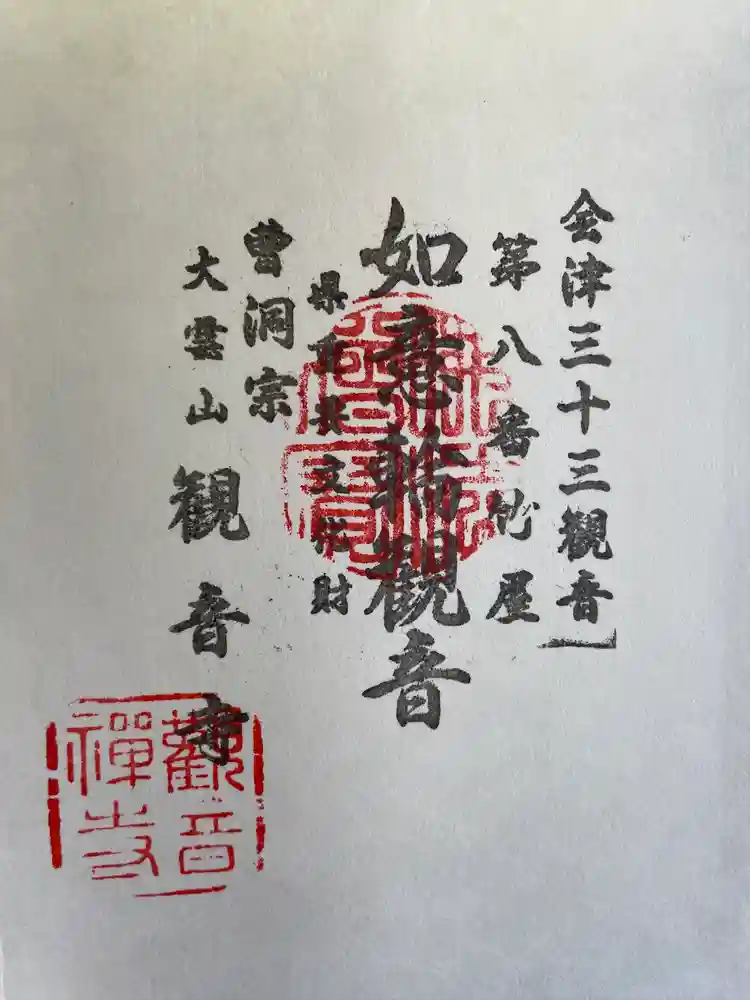 会津三十三観音
第八番竹屋
如意輪観音
県重共文化財
曹洞宗
大雲山
観音寺
佛法僧寶
觀音
禅寺